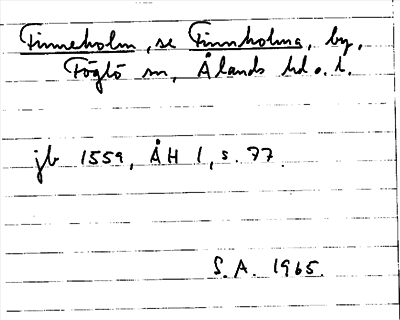 Finneholm, se Finnholma, by,
Föglö sn, Ålands hd o. l.
jb 1559, ÅH 1, s. 77.
S.A. 1965.